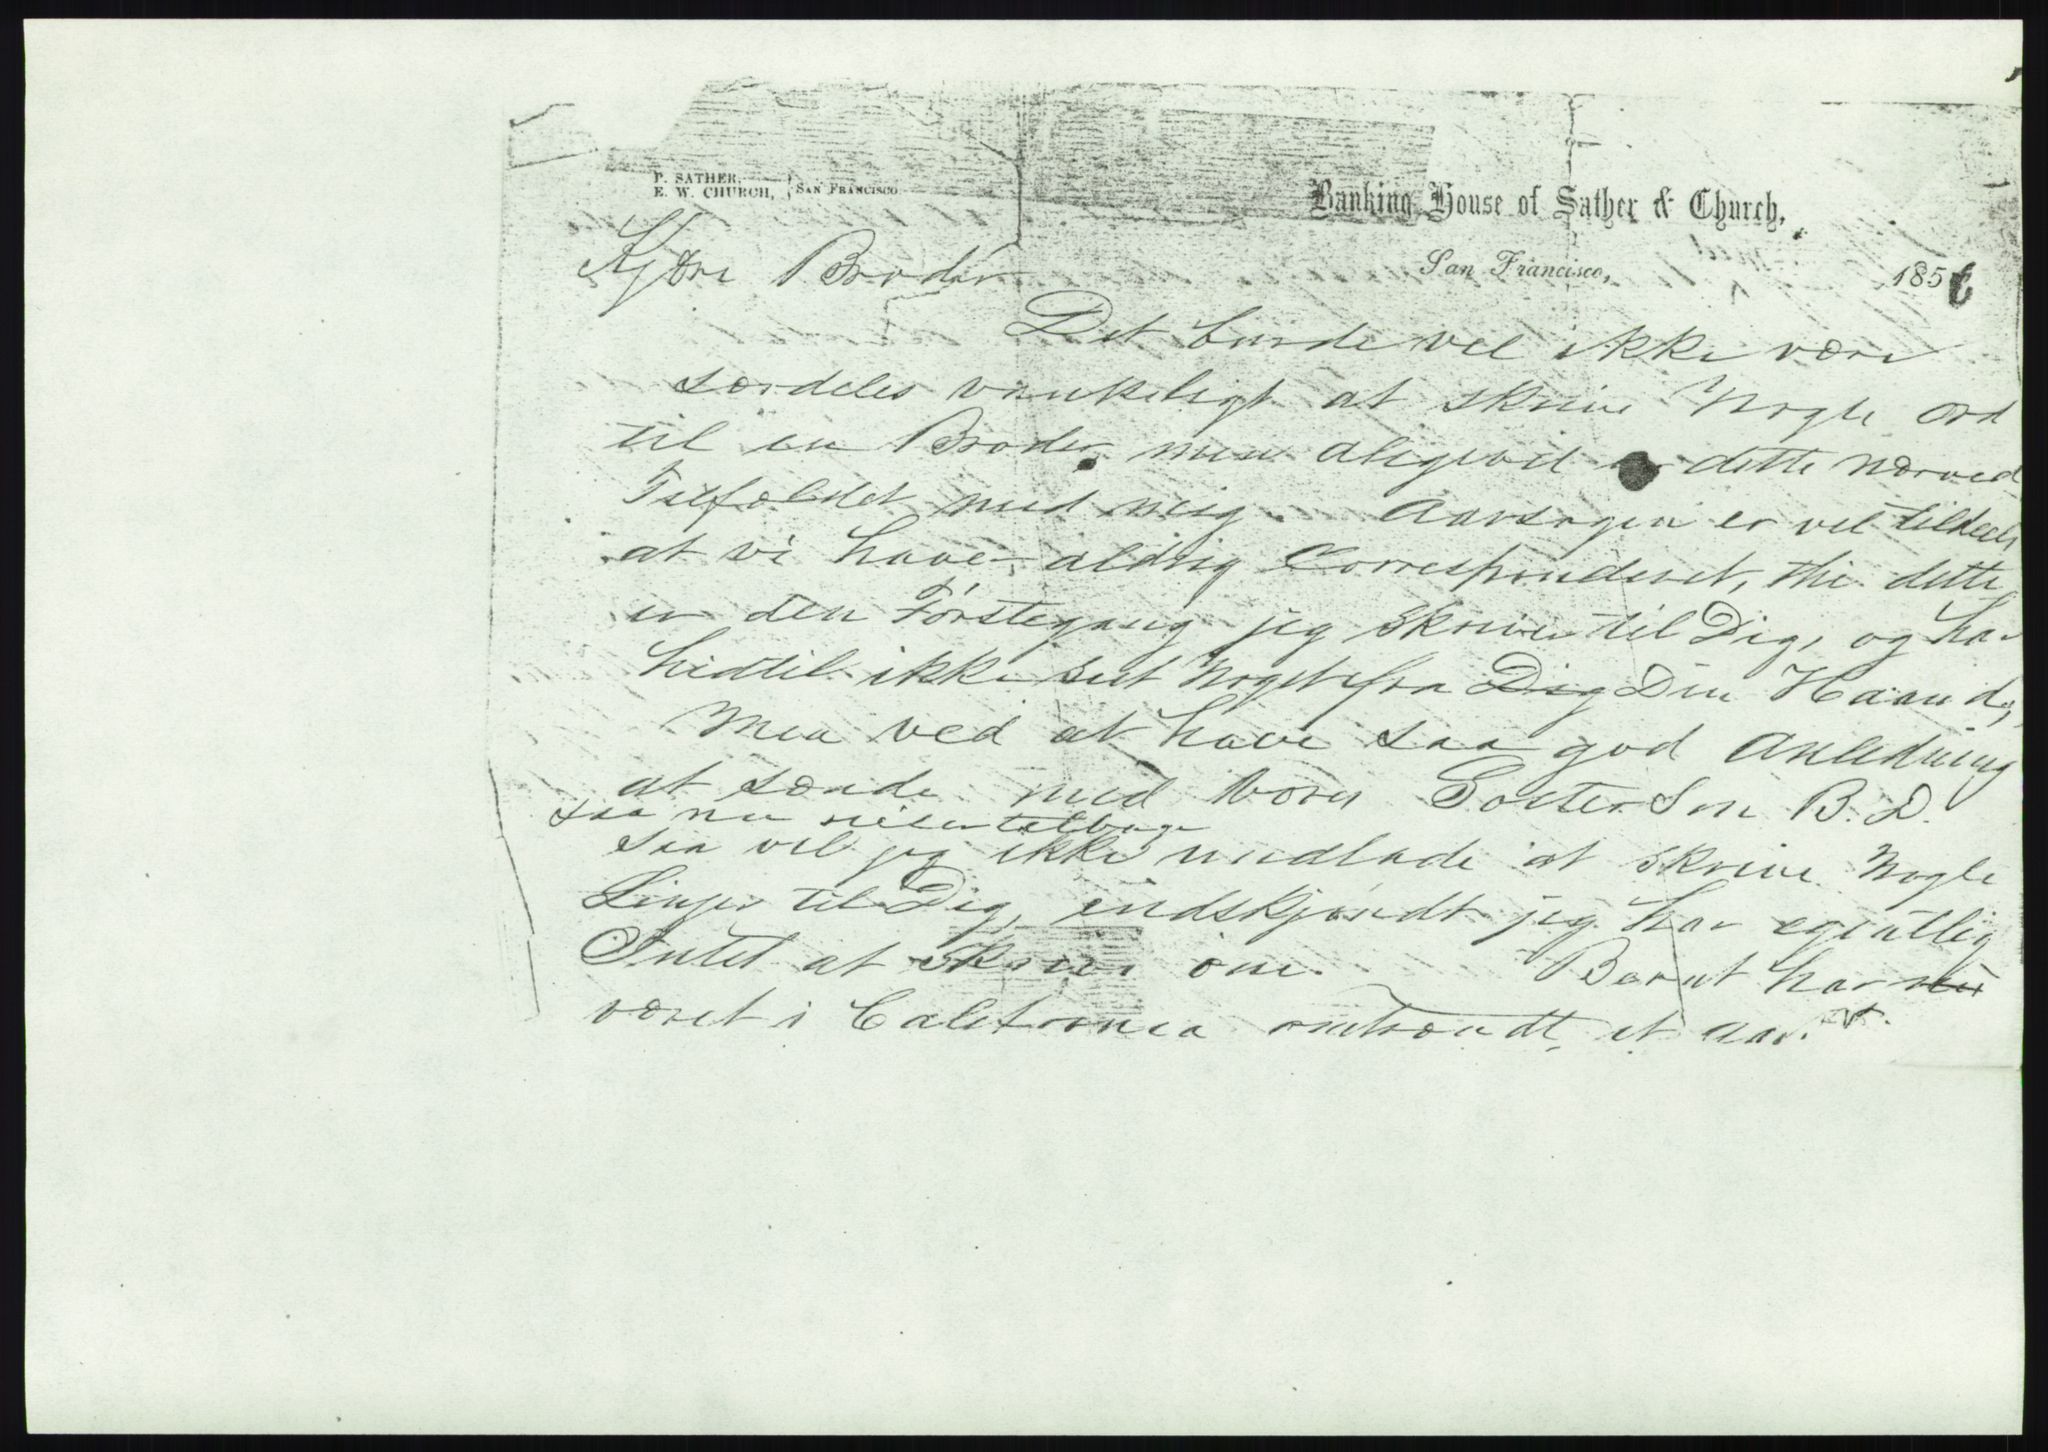 P. SATHER,
E. W. CHURCH, } SAN FRANCISCO
Banking House of Sather & Church,
San Francisco, 1856
Kjære Broder
Det burde vel ikke være
særdeles vankeligt at skrive Nogle ord
til en Broder, men aligevel er dette nærved
Tilfældet med mig. Aarsagen er vel tildeels
at vi have aldrig Correspunderet, thi dette
er den Førstegang jeg skriver til Dig, og har
hidtil ikke seet Noget fra Dig Din Haand,
Men ved at have saa god Anledning
at sænde med vores Søster Søn B. D.
saa nu reiser tilbage
saa vil jeg ikke undlade at skrive Nogle
Linjer til Dig, endskjøndt jeg har egentlig
Intet at skrive om. Bernt har nu
været i California omtrændt et aar.